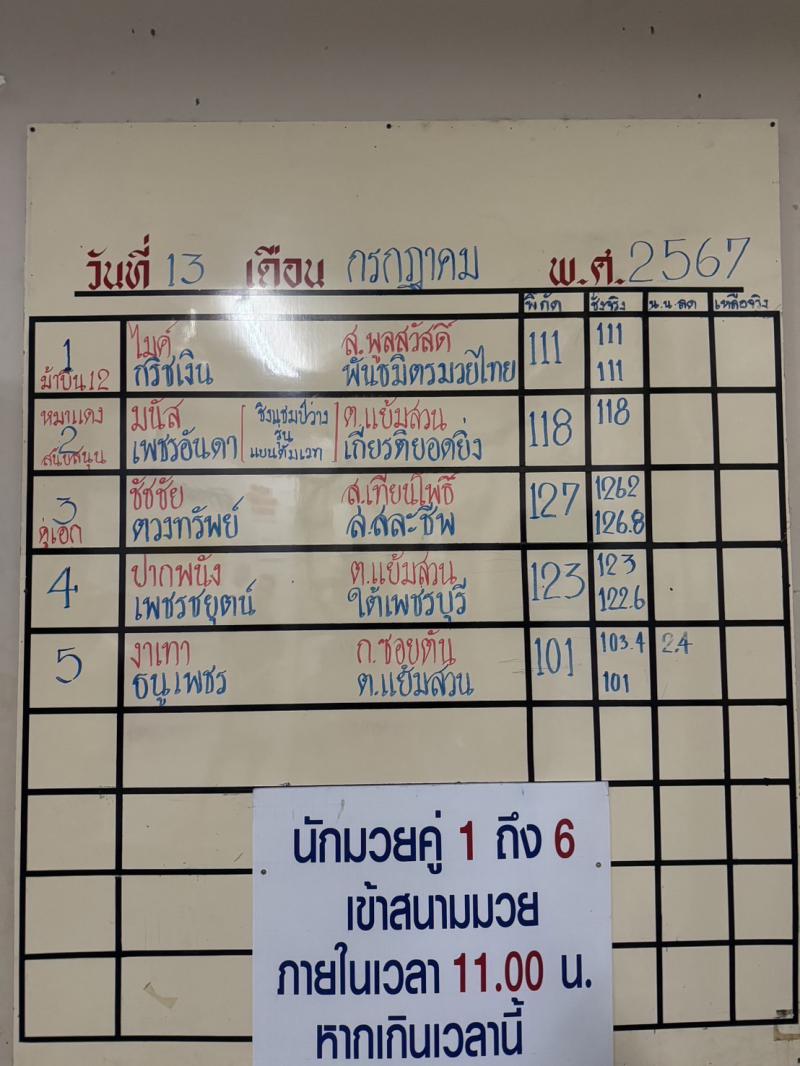 วันที่ 13 เดือน กรกฎาคม พ.ศ. 2567
พิกัด ชั่งจริง น.น.ลด เหลือจริง
1 ไมค์ ส.พูลสวัสดิ์ 111 111
ม้าบิน12 กริชเงิน พันธมิตรมวยไทย 111
หมาแดง มนัส ชิงแชมป์ว่าง ต.แย้มสวน 118 118
2 รุ่น
สนับสนุน เพชรอันดา แบนตั้มเวท เกียรติยอดยิ่ง
3 ชัชชัย ส.เทียนโพธิ์ 127 126.2
คู่เอก ตวงทรัพย์ ส.สละชีพ 126.8
4 ปากพนัง ต.แย้มสวน 123 123
เพชรชยุตน์ ใต้เพชรบุรี 122.6
5 งาเทา ก.ซอยตัน 101 103.4 2.4
ธนูเพชร ต.แย้มสวน 101
นักมวยคู่ 1 ถึง 6
เข้าสนามมวย
ภายในเวลา 11.00 น.
หากเกินเวลานี้